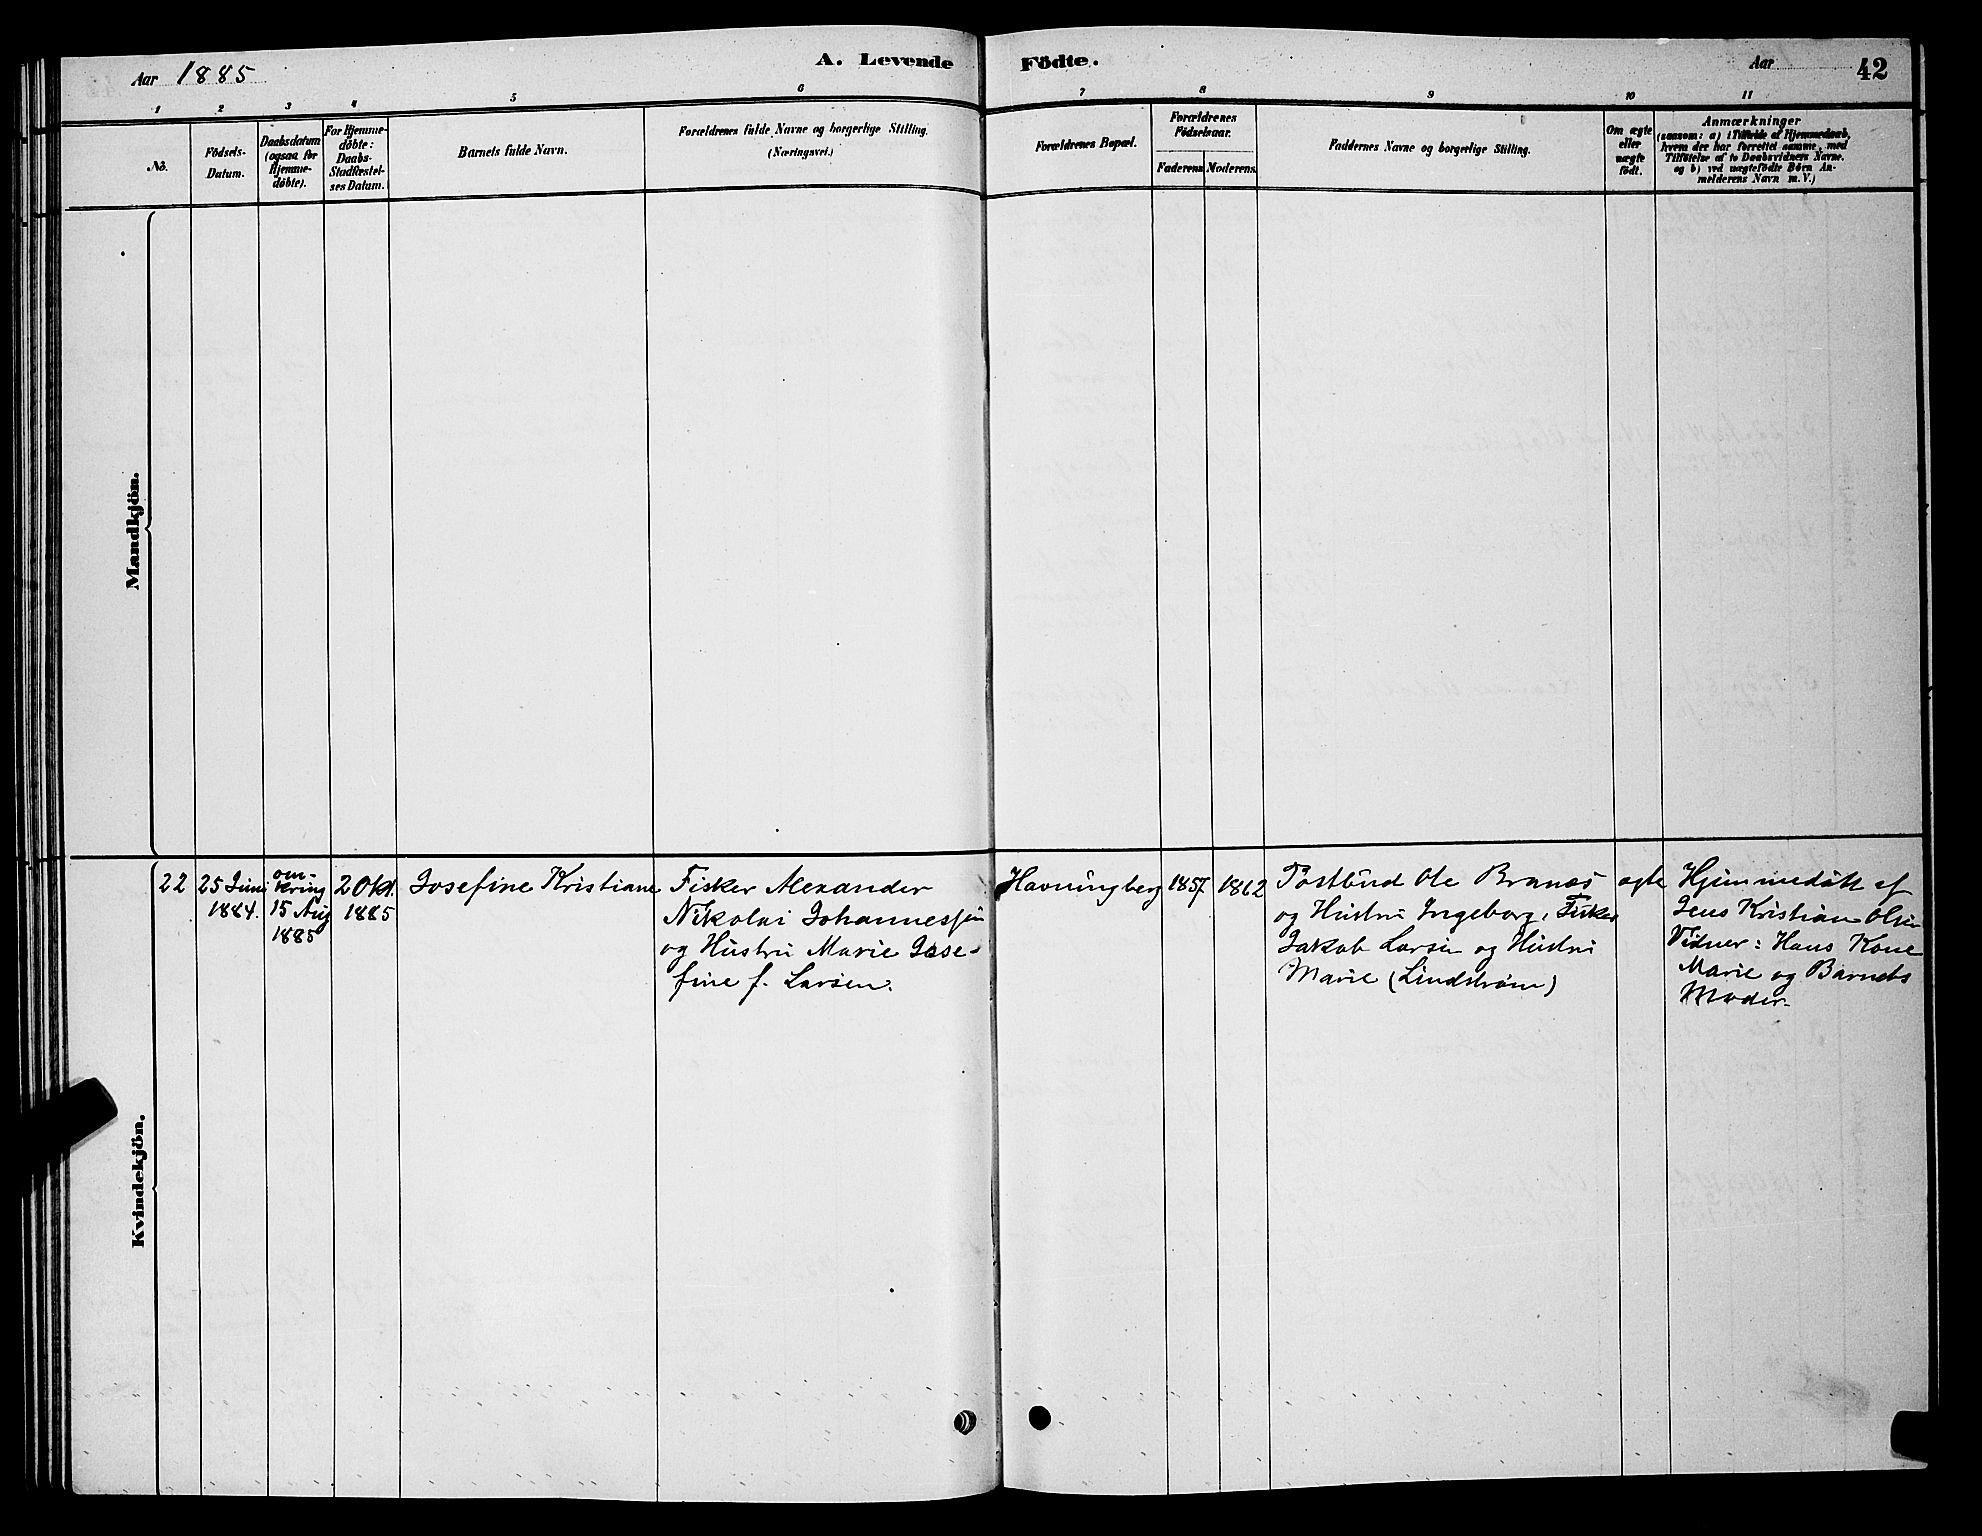 Aar 1885
A. Levende
Födte.
Aar
42
1
2
3
4
5
6
7
8
9
10
11
No.
Födsels-
Datum.
Daabsdatum
(ogsaa for
Hjemme-
døbte).
For Hjemme-
døbte:
Daabs-
Stadfæstel-
ses Datum.
Barnets fulde Navn.
Forældrenes fulde Navne og borgerlige Stilling.
(Næringsvei.)
Forældrenes Bopæl.
Forældrenes
Födselsaar.
Faderens
Moderens
Faddernes Navne og borgerlige Stilling.
Om ægte
eller
uægte
født.
Anmærkninger
(saasom: a) i Tilfælde af Hjemmedaab,
hvem der har forrettet samme, med
Tilføielse af to Daabsvidners Navne.
og b) ved uægtefødte Börn An-
melderens Navn m.V.)
Mandkjön.
Kvindekjön.
22
25 Juni
1884.
om-
kring
15 Aug
1885
2 Okt.
1885
Josefine Kristiane
Fisker Alexander
Nikolai Johannessen
og Hustru Marie Jose-
fine f. Larsen.
Havningberg
1857
1862
Postbud Ole Branæs
og Hustru Ingeborg, Fisker
Jakob Larsen og Hustru
Marie (Lindstrøm)
ægte
Hjemmedøbt af
Jens Kristian Olsen
Vidner: Hans Kone
Marie og Barnets
Moder.